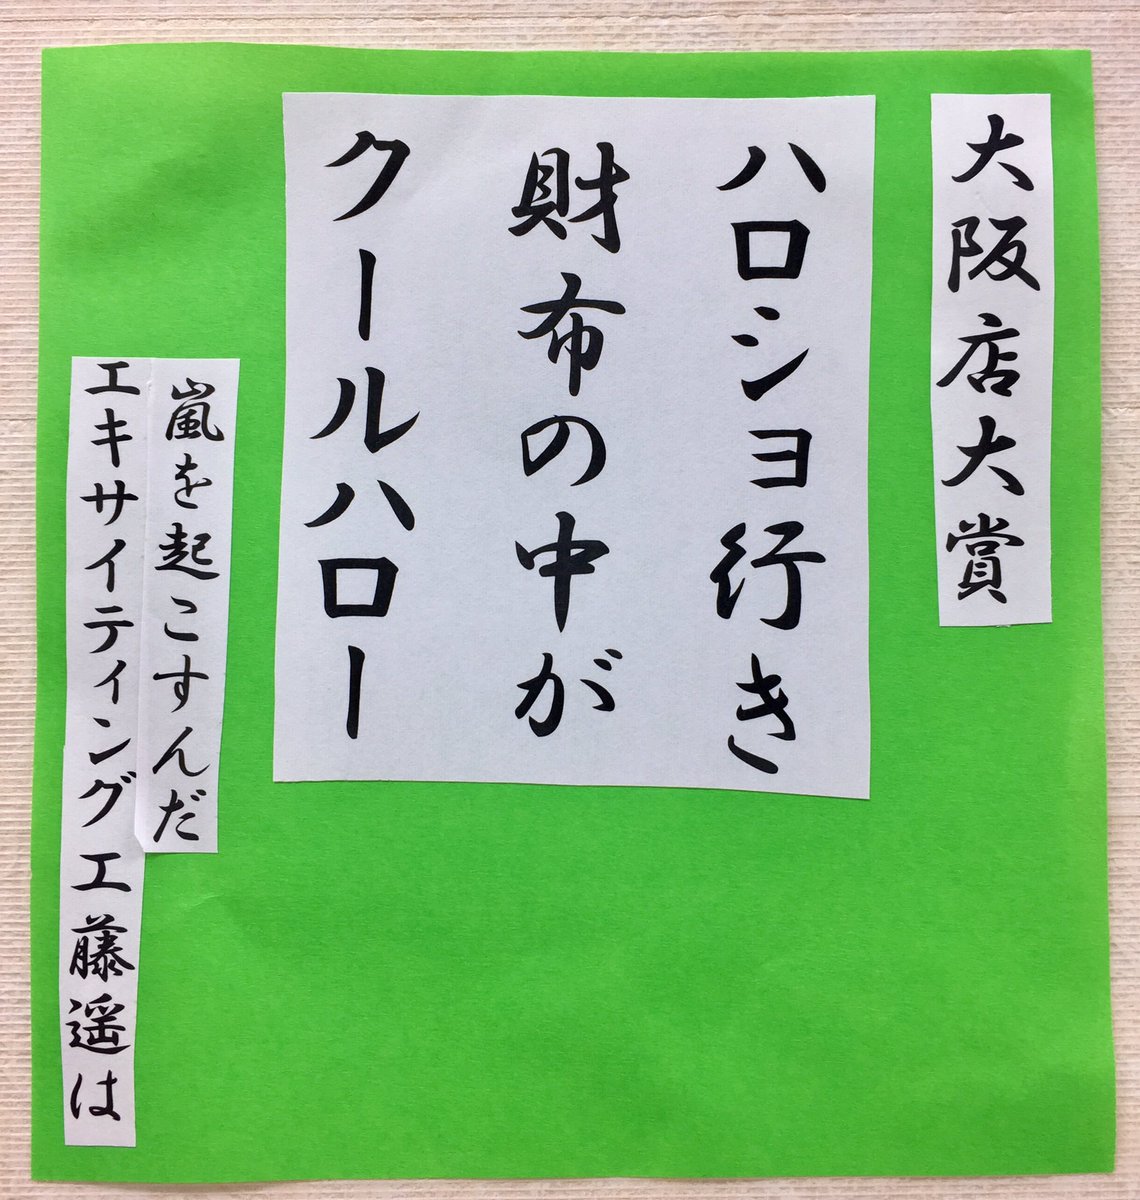 大阪店大賞
ハロショ行き
財布の中が
クールハロー
嵐を起こすんだ
エキサイティング工藤遥は